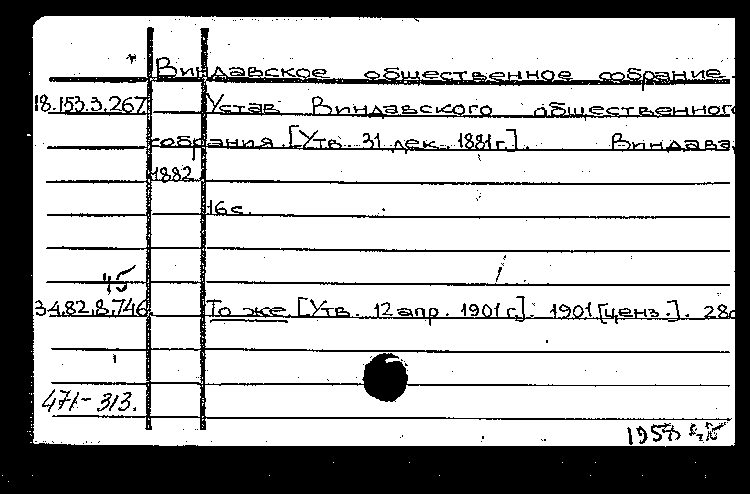 Виндавское общественное собрание
18.153.3.267 Устав Виндавского общественног
собрания. [Утв. 31 дек. 1881 г.]. Виндава,
1882.
16 с.
45
34.82.8.746. То же. [Утв. 12 апр. 1901 г.]. 1901 [ценз.]. 28с
471-313.
1958